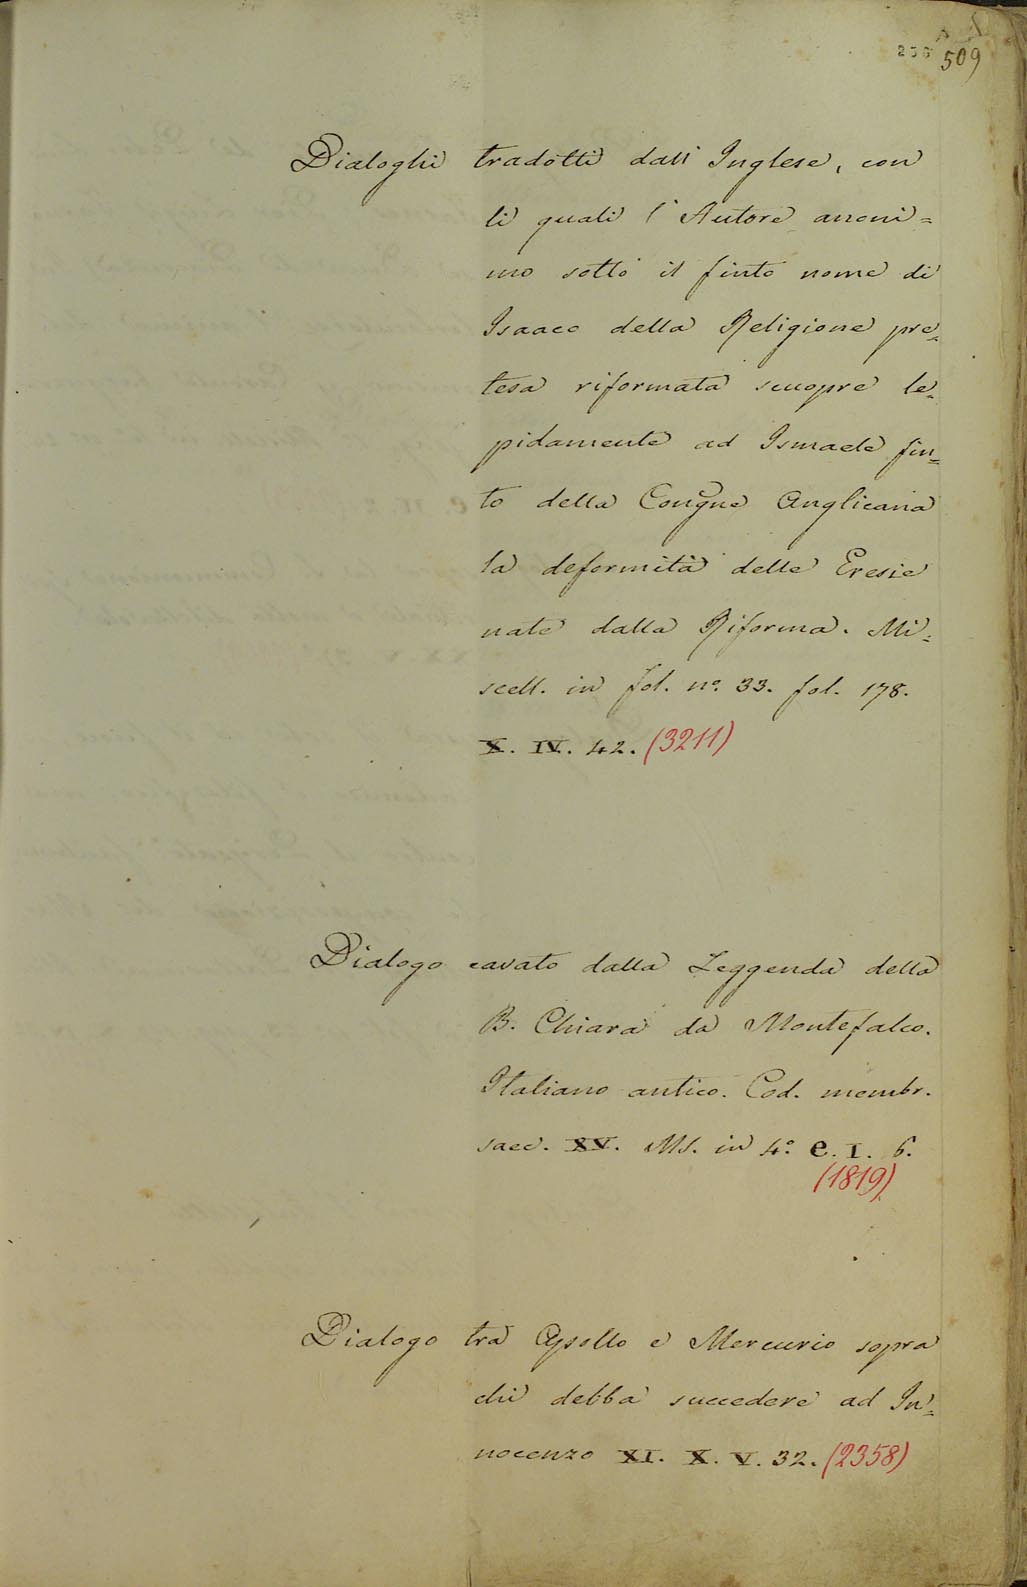 509
Dialoghi tradotti dall' Inglese, con
li quali l'Autore anoni=
mo sotto il finto nome di
Isaaco della Religione pre=
tesa riformata scuopre le=
pidamente ad Ismaele fin=
to della Congne Anglicana
la deformità delle Eresie
nate dalla Riforma. Mi=
scell. in fol. no. 33. fol. 178.
X. IV. 42. (3211)
Dialogo cavato dalla Leggenda della
B. Chiara da Montefalco.
Italiano antico. Cod. membr.
saec. XV. MS. in 4.o e. I. 6.
(1819)
Dialogo trà Apollo e Mercurio sopra
chi debba succedere ad In=
nocenzo XI. X. V. 32. (2358)